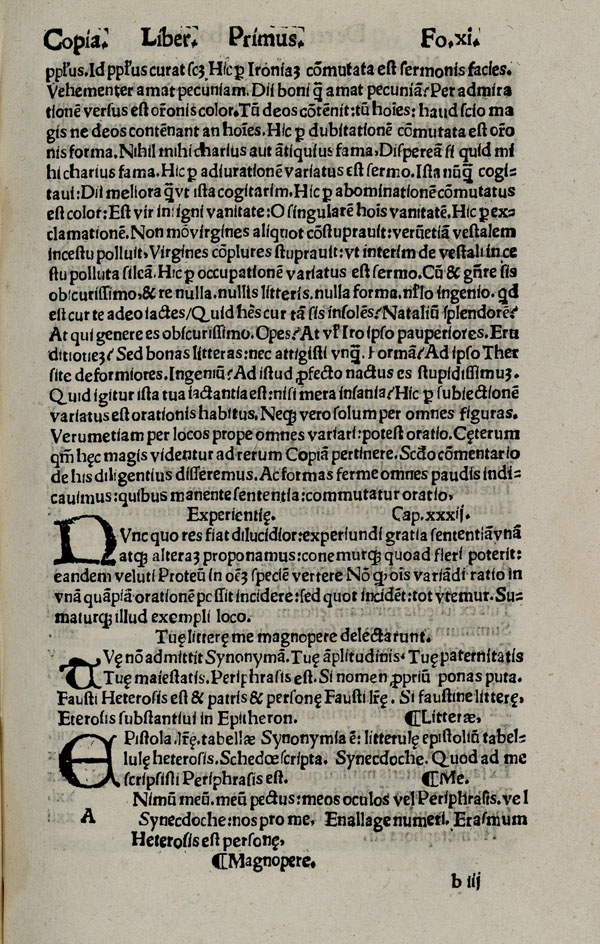 Copia. Liber. Primus. Fo.xi.
pp̄rus. Id pp̄rus curat scꝫ. Hic p Ironiaꝫ cōmutata est sermonis facies.
Vehementer amat pecuniam. Dii boni q̄ amat pecuniā? Per admira
tionē versus est orōnis color. Tū deos cōtēnit: tū hoīes: haud scio ma
gis ne deos contēnant an hoīes. Hic p dubitationē cōmutata est orō
nis forma. Nihil mihi charius aut ātiquius fama, Dispereā si quid mi
hi charius fama. Hic p adiurationē variatus est sermo. Ista nūq̄ cogi-
taui: Dii meliora q̄ vt ista cogitarim. Hic p abominationē cōmutatus
est color: Est vir insigni vanitate: O singularē hoīs vanitatē. Hic p ex-
clamationē. Non mō virgines aliquot cōstuprauit: verūetiā vestalem
incestu polluit, Virgines cōplures stuprauit: vt interim de vestali ince
stu polluta silcā. Hic p occupationē variatus est sermo. Cū & gn̄re sis
obscurissimo, & re nulla. nullis litteris. nulla forma. nllo ingenio. qd
est cur te adeo iactes/ Quid hēs cur tā sis insolēs? Nataliū splendorē?
At qui genere es obscurissimo. Opes? At vl Iro ipso pauperiores. Eru
ditioneꝫ? Sed bonas litteras: nec attigisti vnq̄. Formā? Ad ipso Ther
site deformiores. Ingeniū? Ad istud pfecto nactus es stupidissimuꝫ.
Quid igitur ista tua iactantia est: nisi mera insania? Hic p subiectionē
variatus est orationis habitus. Neqꝫ vero solum per omnes figuras.
Verumetiam per locos prope omnes variari: potest oratio. Cęterum
qm̄ hęc magis videntur ad rerum Copiā pertinere. Scdo cōmentario
de his diligentius disseremus. Ac formas ferme omnes paudis indi-
cauimus: quibus manente sententia: commutatur oratio,
Experientię. Cap.xxxij.
NVnc quo res fiat dilucidior: experiundi gratia sententiā vnā
atqꝫ alteraꝫ proponamus: conemurqꝫ quoad fieri poterit:
eandem veluti Proteū in oēꝫ speciē vertere Nō q̄ oīs variādi ratio in
vnā quāpiā orationē possit incidere: sed quot incidēt: tot vtemur. Su-
maturqꝫ illud exempli loco.
Tuę litterę me magnopere delectarunt.
TVę nō admittit Synonymā. Tuę āplitudinis. Tuę paternitatis
Tuę maiestatis. Periphrasis est. Si nomen ꝓpriū ponas puta.
Fausti Heterosis est & patris & personę Fausti lrę. Si faustine litterę,
Eterosis substantiui in Epitheron. ¶Litteræ,
EPistola. lrę. tabellæ Synonymia ē: litterulę epistoliū tabel-
lulę heterosis. Schedœ scripta. Synecdoche. Quod ad me
scripsisti Periphrasis est. ¶Me.
ANimū meū. meū pectus: meos oculos vel Periphrasis. vel
Synecdoche: nos pro me, Enallage numeri. Erasmum
Heterosis est personę,
¶Magnopere.
b iij